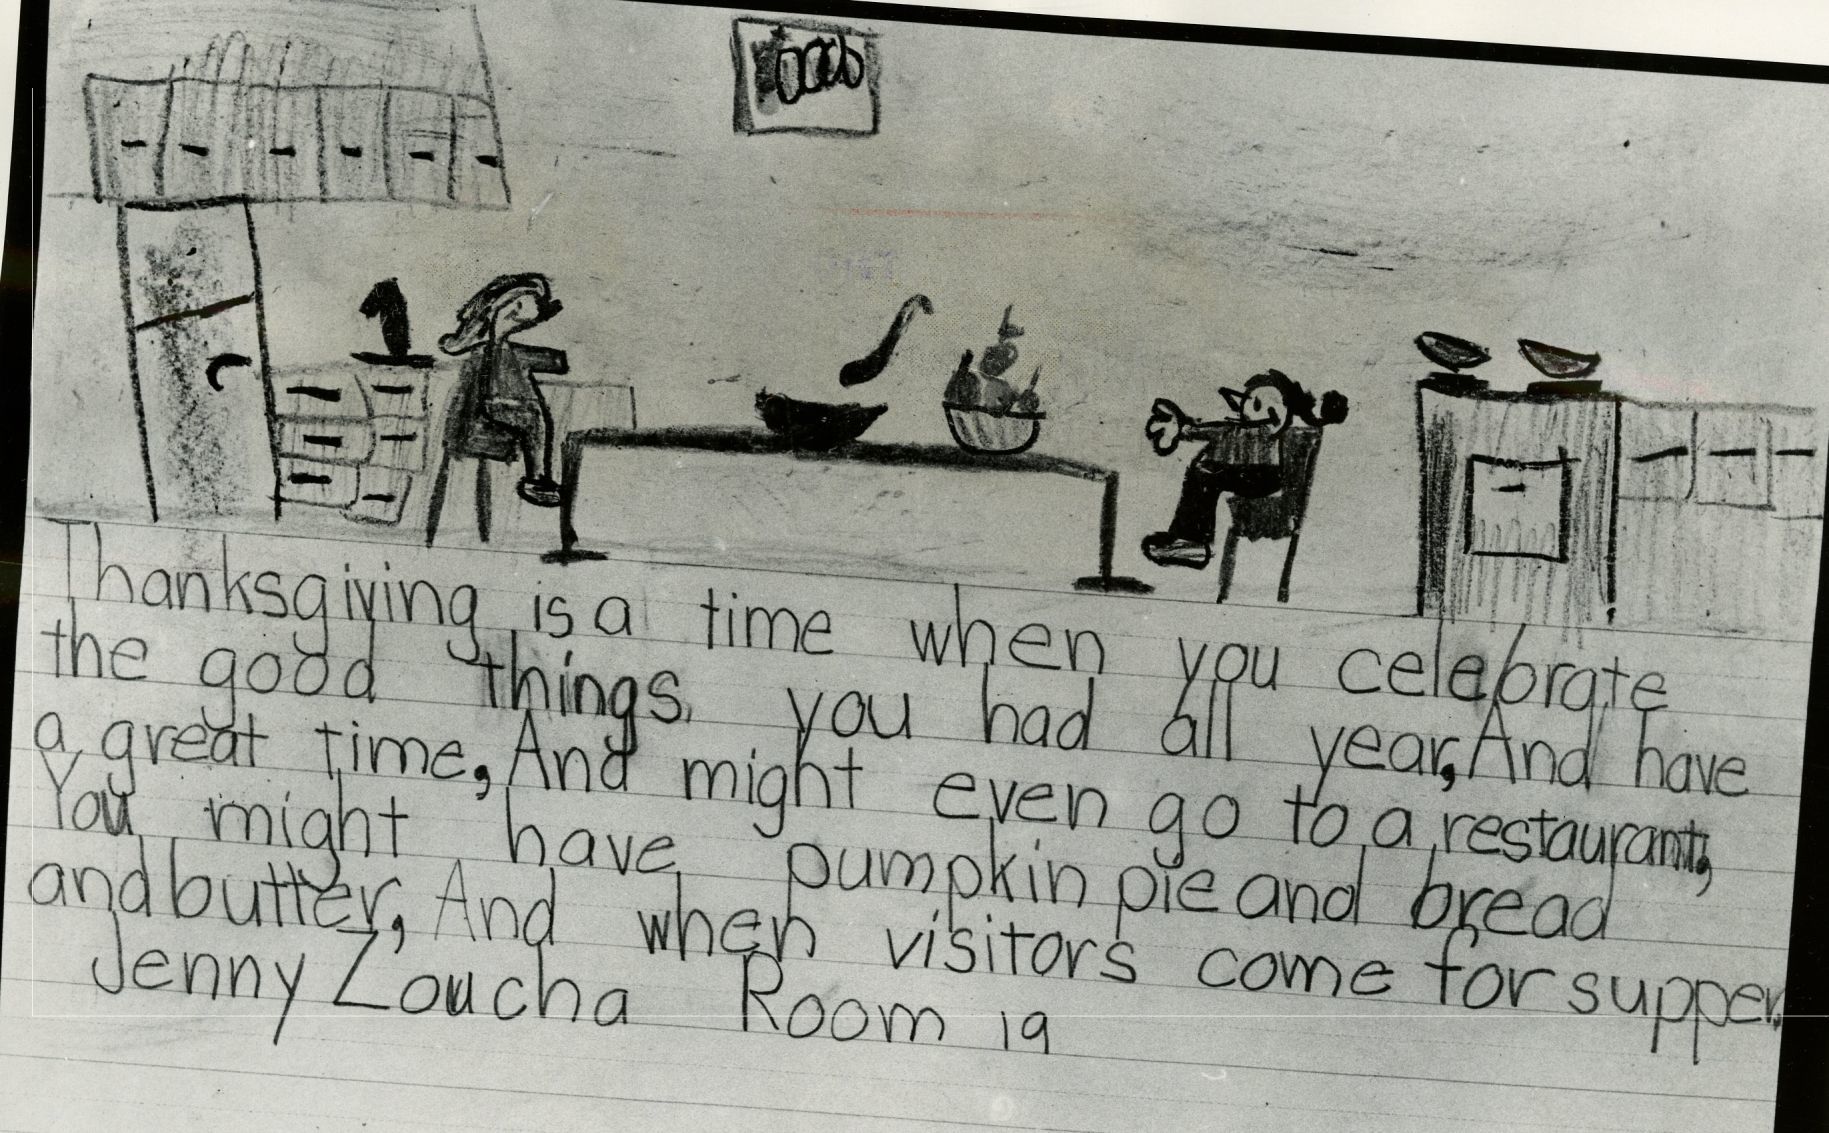 Thanksgiving is a time when you celebrate
the good things you had all year, And have
a great time, And might even go to a restaurant,
You might have pumpkin pie and bread
and butter, And when visitors come for supper.
Jenny Zoucha Room 19